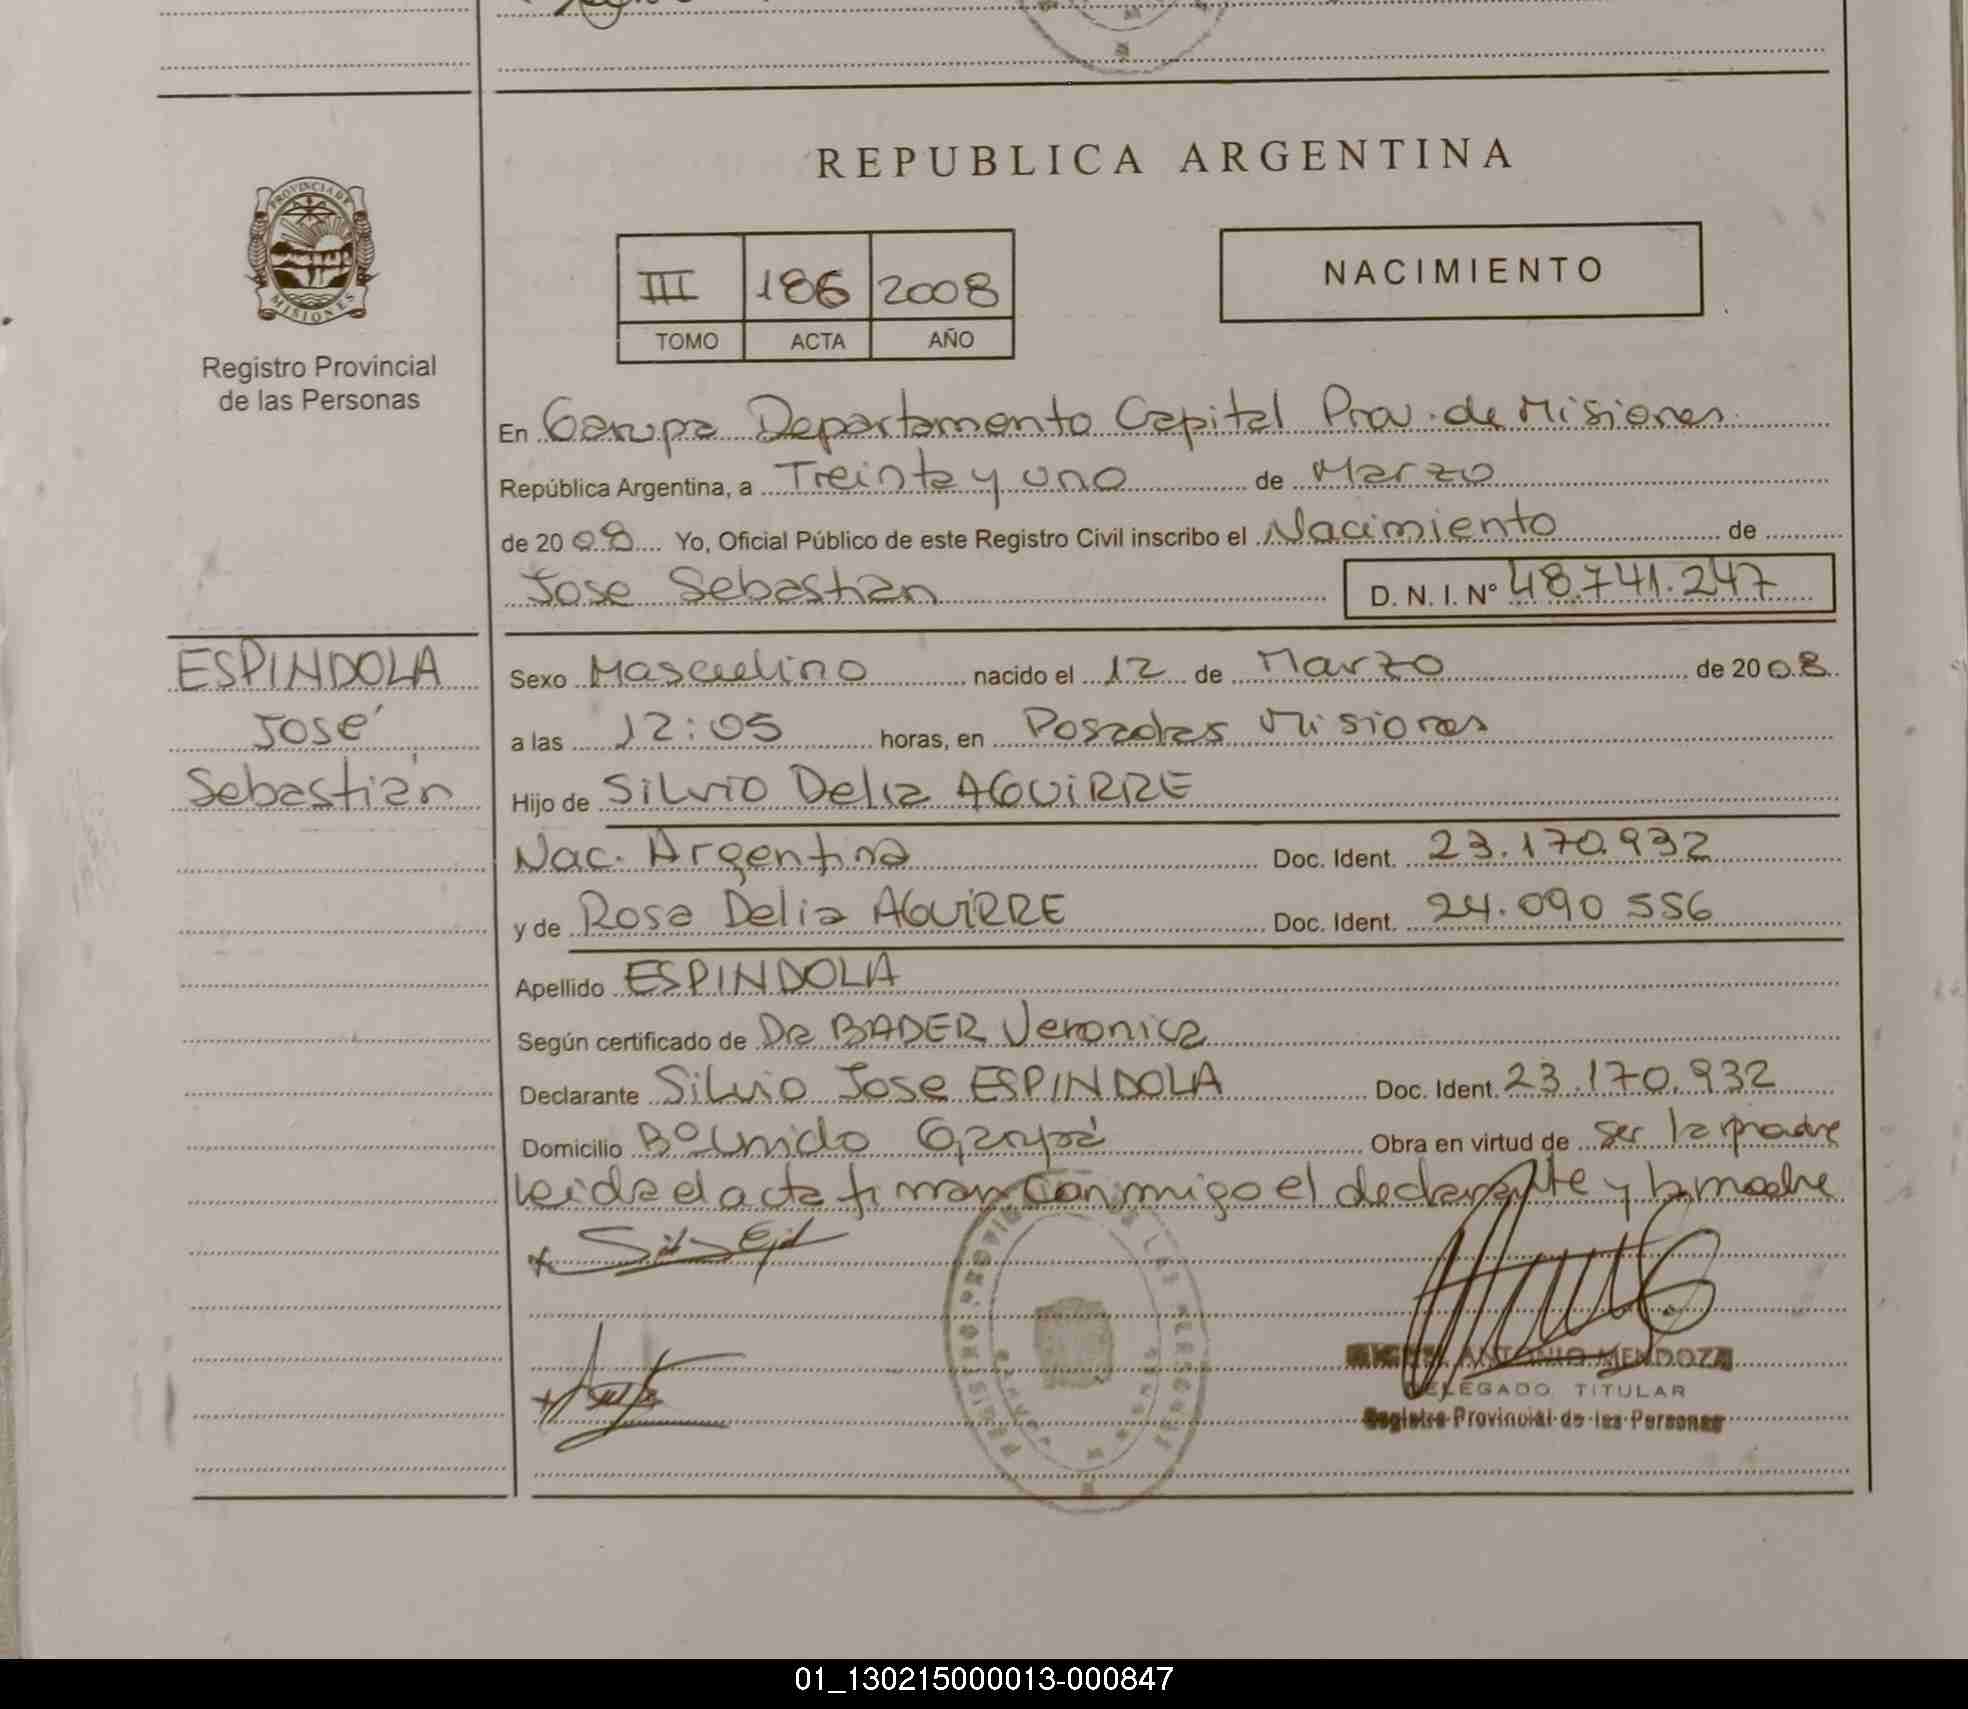 REPUBLICA ARGENTINA
PROVINCIA DE
MISIONES
Registro Provincial
de las Personas
III 186 2008
TOMO ACTA AÑO
NACIMIENTO
En Garupa Departamento Capital Prov. de Misiones
República Argentina, a Treinta y uno de Marzo
de 2008 Yo, Oficial Público de este Registro Civil inscribo el Nacimiento de
Jose Sebastian D. N. I. Nº 48.741.247
ESPINDOLA
José
Sebastián
Sexo Masculino nacido el 12 de Marzo de 2008
a las 12:05 horas, en Posadas Misiones
Hijo de Silvio Delia AGUIRRE
Nac. Argentina Doc. Ident. 23.170.932
y de Rosa Delia AGUIRRE Doc. Ident. 24.090 556
Apellido ESPINDOLA
Según certificado de Dra BADER Veronica
Declarante Silvio Jose ESPINDOLA Doc. Ident. 23.170.932
Domicilio Bº Unido Garupá Obra en virtud de ser la madre
Leida el acta firman conmigo el declarante y la madre
ANTONIO MENDOZA
DELEGADO TITULAR
Registro Provincial de las Personas
01_130215000013-000847